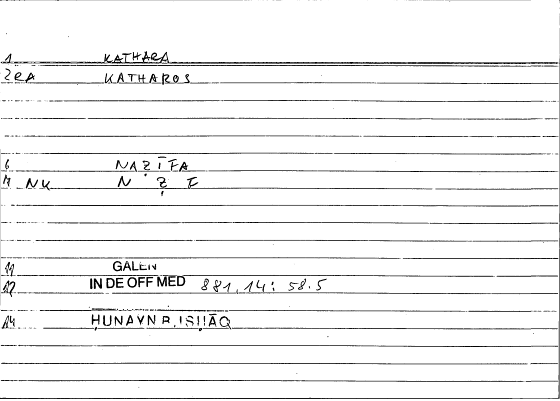 1 KATHARA
2 RA KATHAROS
6 NAẒĪFA
7 NK N Ẓ F
11 GALEN
12 IN DE OFF MED 881.14: 58.5
14 ḤUNAYN B. ISḤĀQ